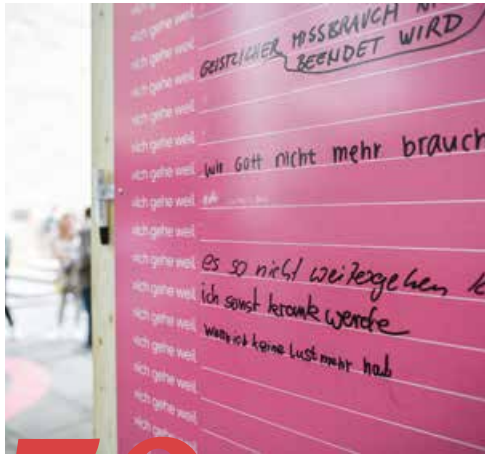 »ich gehe weil GEISTLICHER MISSBRAUCH
BEENDET WIRD
»ich gehe weil
»ich gehe weil
»ich gehe weil
»ich gehe weil wir Gott nicht mehr brauch
»ich gehe weil
»ich gehe weil
»ich gehe weil es so nicht weitergehen k
»ich gehe weil ich sonst krank werde
»ich gehe weil wenn ich keine Lust mehr hab
»ich gehe weil
»ich gehe weil
»ich gehe weil
»ich gehe weil